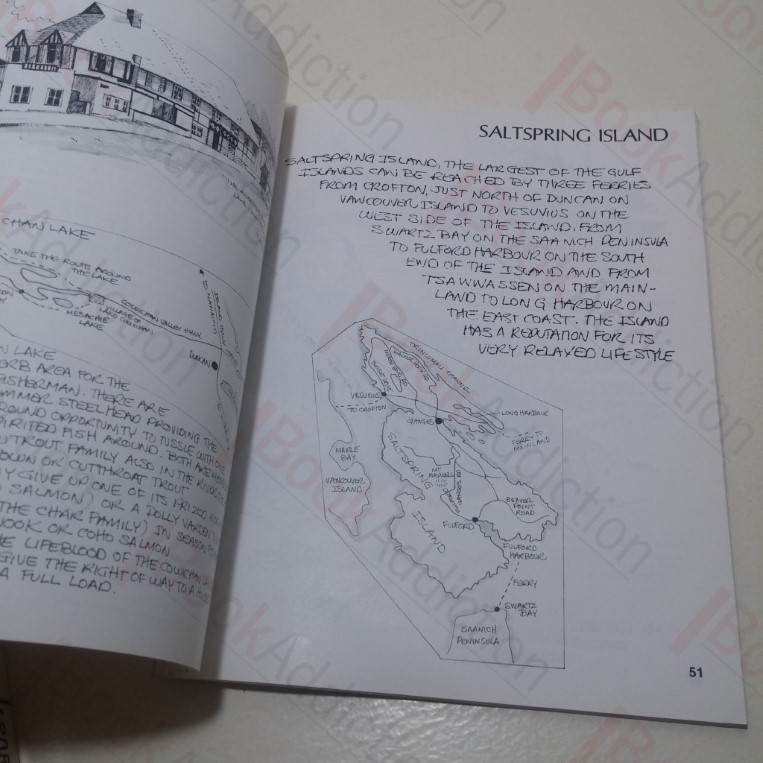 CHAN LAKE
TAKE THE ROUTE AROUND
THE LAKE
MESACHIE
LAKE
COWICHAN VALLEY HWAY
DUNCAN
N LAKE
ERB AREA FOR THE
FISHERMAN. THERE ARE
MMER STEELHEAD PROVIDING THE
ROUND OPPORTUNITY TO TUSSLE WITH ONE
PIRITED FISH AROUND. BOTH ARE
TROUT FAMILY ALSO IN THE
OWN OR CUTTHROAT TROUT
Y GIVE UP ONE OF ITS PRIZED
SALMON) OR A DOLLY VARDEN
THE CHAR FAMILY) IN SEASON
NOOK OR COHO SALMON
E LIFEBLOOD OF THE COWICHAN
GIVE THE RIGHT OF WAY TO A
A FULL LOAD.
SALTSPRING ISLAND
SALTSPRING ISLAND, THE LARGEST OF THE GULF
ISLANDS CAN BE REACHED BY THREE FERRIES
FROM CROFTON, JUST NORTH OF DUNCAN ON
VANCOUVER ISLAND TO VESUVIUS ON THE
WEST SIDE OF THE ISLAND, FROM
SWARTZ BAY ON THE SAANICH PENINSULA
TO FULFORD HARBOUR ON THE SOUTH
END OF THE ISLAND AND FROM
TSAWWASSEN ON THE MAIN-
LAND TO LONG HARBOUR ON
THE EAST COAST. THE ISLAND
HAS A REPUTATION FOR ITS
VERY RELAXED LIFESTYLE
VESUVIUS
TO CROFTON
LONG HARBOUR
GANGES
FERRY TO
MAINLAND
MAPLE
BAY
VANCOUVER
ISLAND
SALTSPRING
ISLAND
MT
MAXWELL
BEAVER
POINT
ROAD
FULFORD
FULFORD
HARBOUR
FERRY
SWARTZ
BAY
SAANICH
PENINSULA
51
BookAddiction